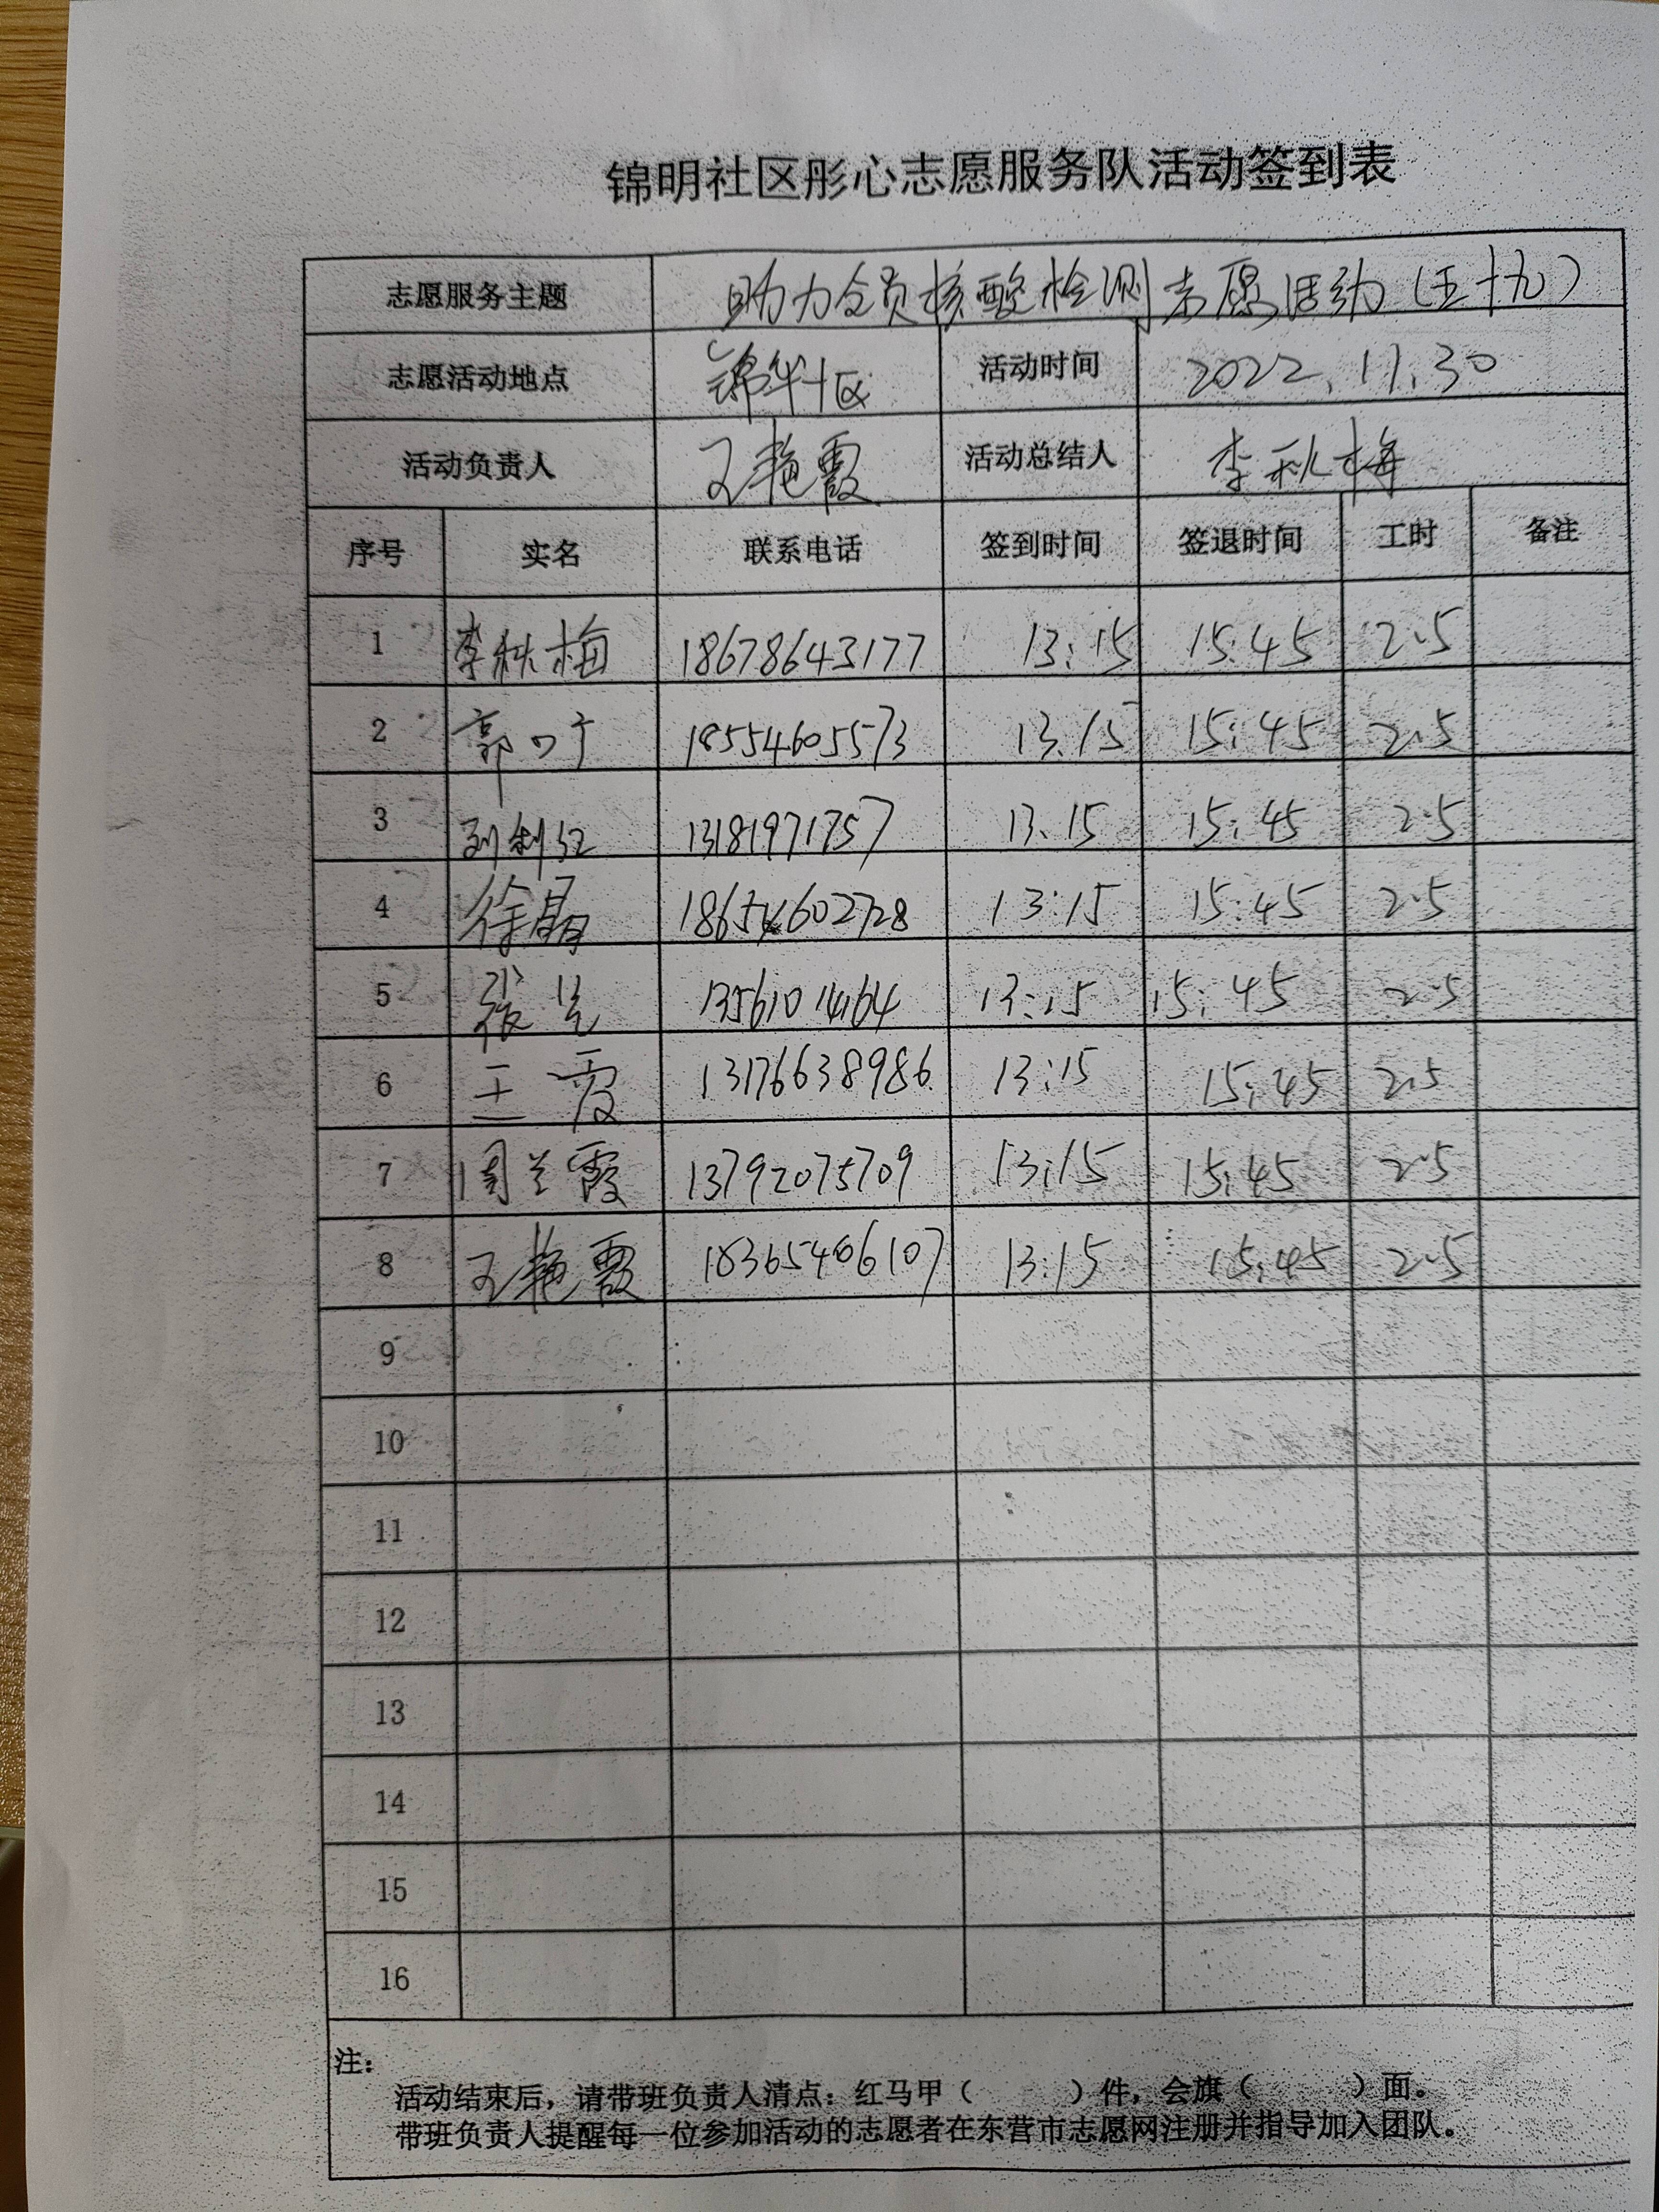 锦明社区彤心志愿服务队活动签到表
志愿服务主题 助力全员核酸检测志愿活动（五十九）
志愿活动地点 锦华十区 活动时间 2022.11.30
活动负责人 王艳霞 活动总结人 李秋梅
序号 实名 联系电话 签到时间 签退时间 工时 备注
1 李秋梅 18678643177 13:15 15:45 2.5
2 郭叮 18554605573 13:15 15:45 2.5
3 刘利红 13181971757 13:15 15:45 2.5
4 徐晶 18654602728 13:15 15:45 2.5
5 张兰 13561014164 13:15 15:45 2.5
6 王霞 13176638986 13:15 15:45 2.5
7 周兰霞 13792075709 13:15 15:45 2.5
8 王艳霞 18365406107 13:15 15:45 2.5
9
10
11
12
13
14
15
16
注：
活动结束后，请带班负责人清点：红马甲（ ）件，会旗（ ）面。
带班负责人提醒每一位参加活动的志愿者在东营市志愿网注册并指导加入团队。